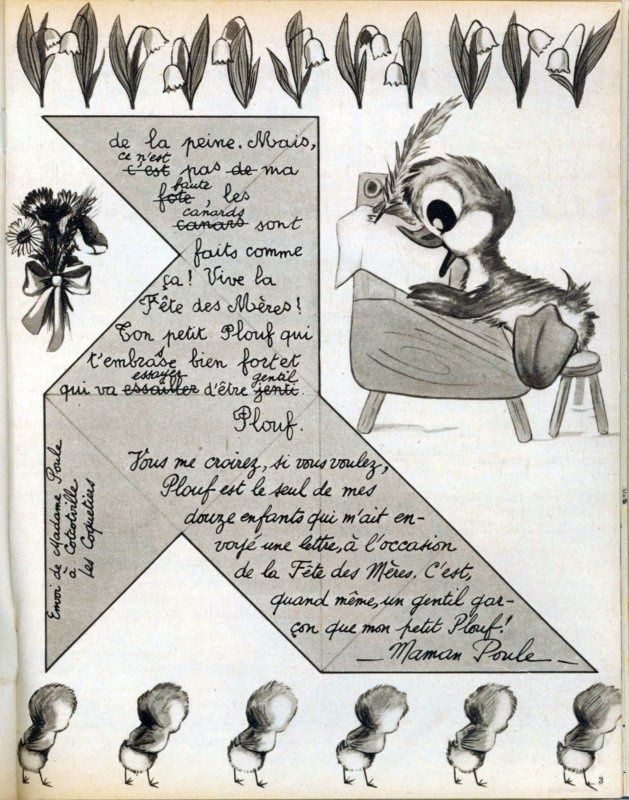 de la peine. Mais,
ce n'est
c'est pas de ma
faute
fôte, les
canards
canars sont
faits comme
ça! Vive la
Fête des Mères!
Ton petit Plouf qui
t'embrase bien fort et
essayer gentil
qui va essailler d'être jenti.
Plouf.
Vous me croirez, si vous voulez,
Plouf est le seul de mes
douze enfants qui m'ait en-
voyé une lettre, à l'occasion
de la Fête des Mères. C'est,
quand même, un gentil gar-
çon que mon petit Plouf!
— Maman Poule —
Envoi de Madame Poule
à Cotcotville
les Coquetiers
3